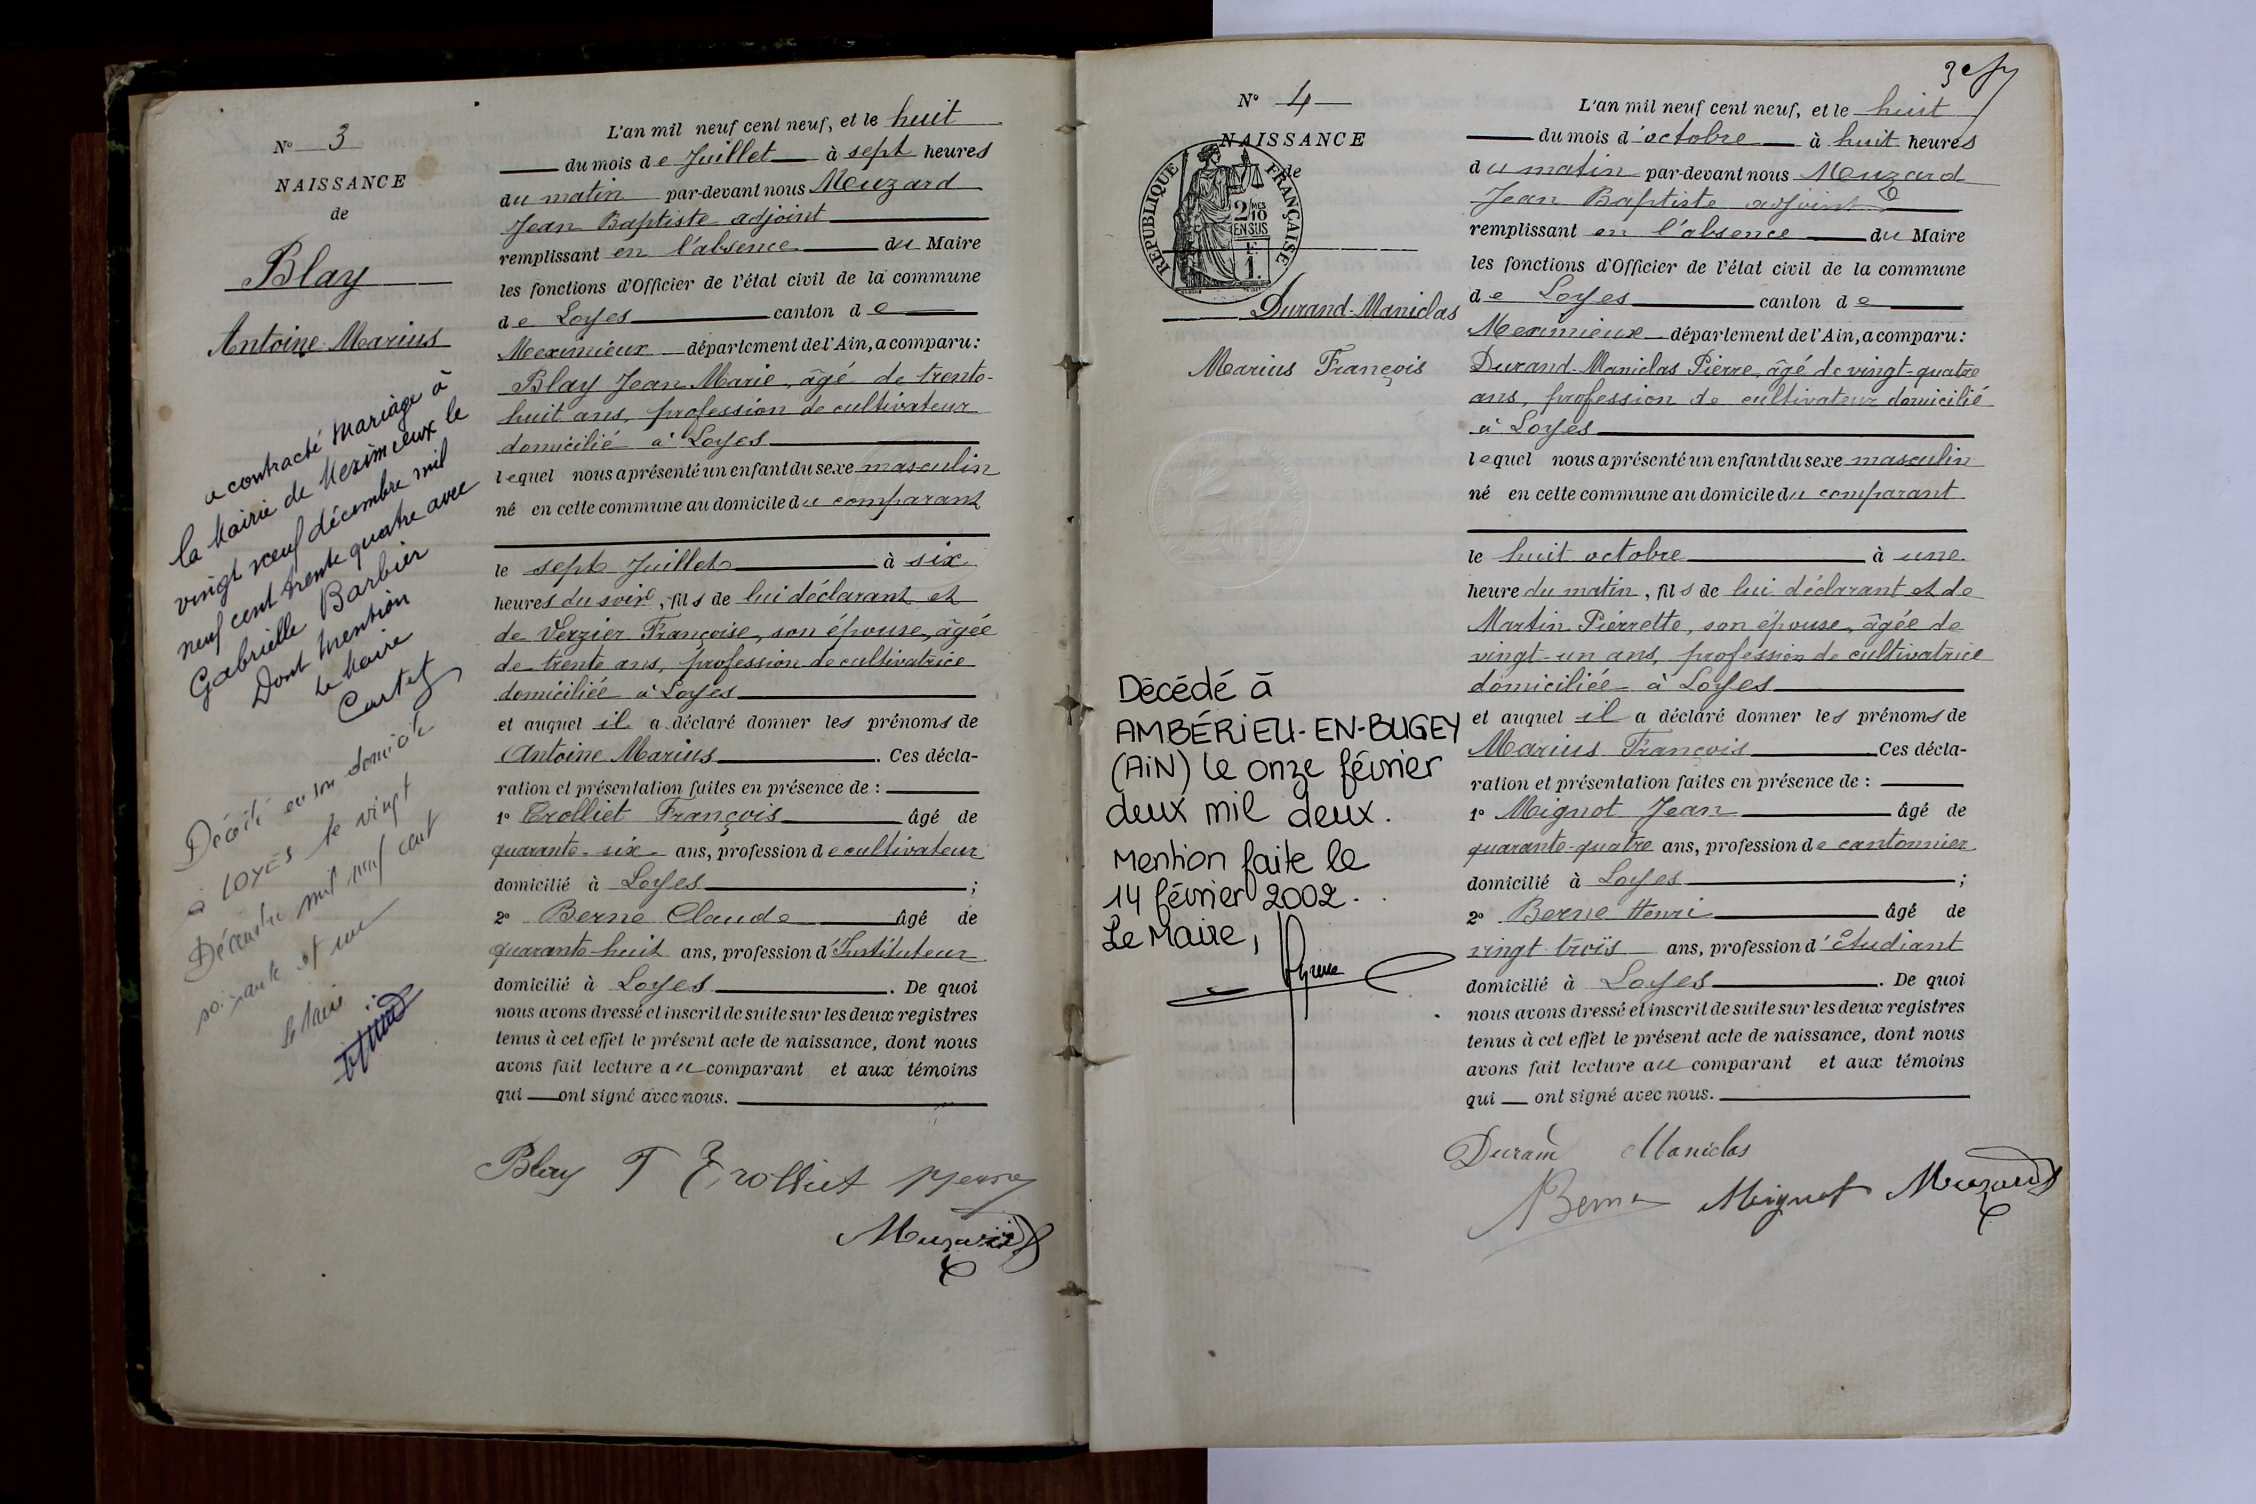 N° 3
NAISSANCE
de
Blay
Antoine Marius
a contracté mariage à
la Mairie de Meximieux le
vingt neuf décembre mil
neuf cent trente quatre avec
Gabrielle Barbier
Dont mention
Le Maire
Décédé en son domicile
à LOYES le vingt
Décembre mil neuf cent
soixante et un
Le Maire
L'an mil neuf cent neuf, et le huit
du mois de Juillet à sept heures
du matin par-devant nous Meuzard
Jean Baptiste adjoint
remplissant en l'absence du Maire
les fonctions d'Officier de l'état civil de la commune
de Loyes canton de
Meximieux département de l'Ain, a comparu :
Blay Jean Marie, âgé de trente-
huit ans, profession de cultivateur
domicilié à Loyes
lequel nous a présenté un enfant du sexe masculin
né en cette commune au domicile du comparant
le sept Juillet à six
heures du soir, fils de lui déclarant et
de Verzier Françoise, son épouse, âgée
de trente ans, profession de cultivatrice
domiciliée à Loyes
et auquel il a déclaré donner les prénoms de
Antoine Marius. Ces décla-
ration et présentation faites en présence de :
1° Trolliet François âgé de
quarante-six ans, profession de cultivateur
domicilié à Loyes ;
2° Berne Claude âgé de
quarante-huit ans, profession d'Instituteur
domicilié à Loyes. De quoi
nous avons dressé et inscrit de suite sur les deux registres
tenus à cet effet le présent acte de naissance, dont nous
avons fait lecture au comparant et aux témoins
qui ont signé avec nous.
Blay F Trolliet Berne
Meuzard
3e
N° 4
NAISSANCE
de
RÉPUBLIQUE FRANÇAISE
2/10MES
EN SUS
F.
1.
Durand-Maniclas
Marius François
Décédé à
AMBÉRIEU-EN-BUGEY
(AIN) le onze février
deux mil deux.
Mention faite le
14 février 2002.
Le Maire,
L'an mil neuf cent neuf, et le huit
du mois d'octobre à huit heures
du matin par-devant nous Meuzard
Jean Baptiste adjoint
remplissant en l'absence du Maire
les fonctions d'Officier de l'état civil de la commune
de Loyes canton de
Meximieux département de l'Ain, a comparu :
Durand-Maniclas Pierre, âgé de vingt-quatre
ans, profession de cultivateur domicilié
à Loyes
lequel nous a présenté un enfant du sexe masculin
né en cette commune au domicile du comparant
le huit octobre à une
heure du matin, fils de lui déclarant et de
Martin Pierrette, son épouse, âgée de
vingt-un ans, profession de cultivatrice
domiciliée à Loyes
et auquel il a déclaré donner les prénoms de
Marius François Ces décla-
ration et présentation faites en présence de :
1° Mignot Jean âgé de
quarante-quatre ans, profession de cantonnier
domicilié à Loyes ;
2° Berne Henri âgé de
vingt trois ans, profession d'étudiant
domicilié à Loyes. De quoi
nous avons dressé et inscrit de suite sur les deux registres
tenus à cet effet le présent acte de naissance, dont nous
avons fait lecture au comparant et aux témoins
qui ont signé avec nous.
Durand Maniclas
Berne Mignot Meuzard